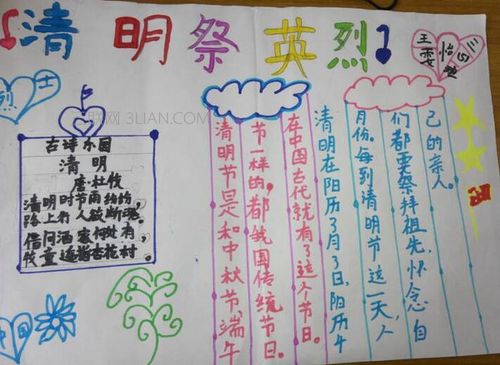 清明祭英烈
烈士
3LIAN.COM
古诗乐园
清明
唐杜牧
清明时节雨纷纷,
路上行人欲断魂。
借问酒家何处有,
牧童遥指杏花村.
清明节是和中秋节、端午
节一样的,都我国传统节日。
在中国古代就有了这个节日。
清明在阳历3月3日,阳历4
月份,每到清明节这一天,人
们都要祭拜祖先,怀念自
己的亲人。
清明